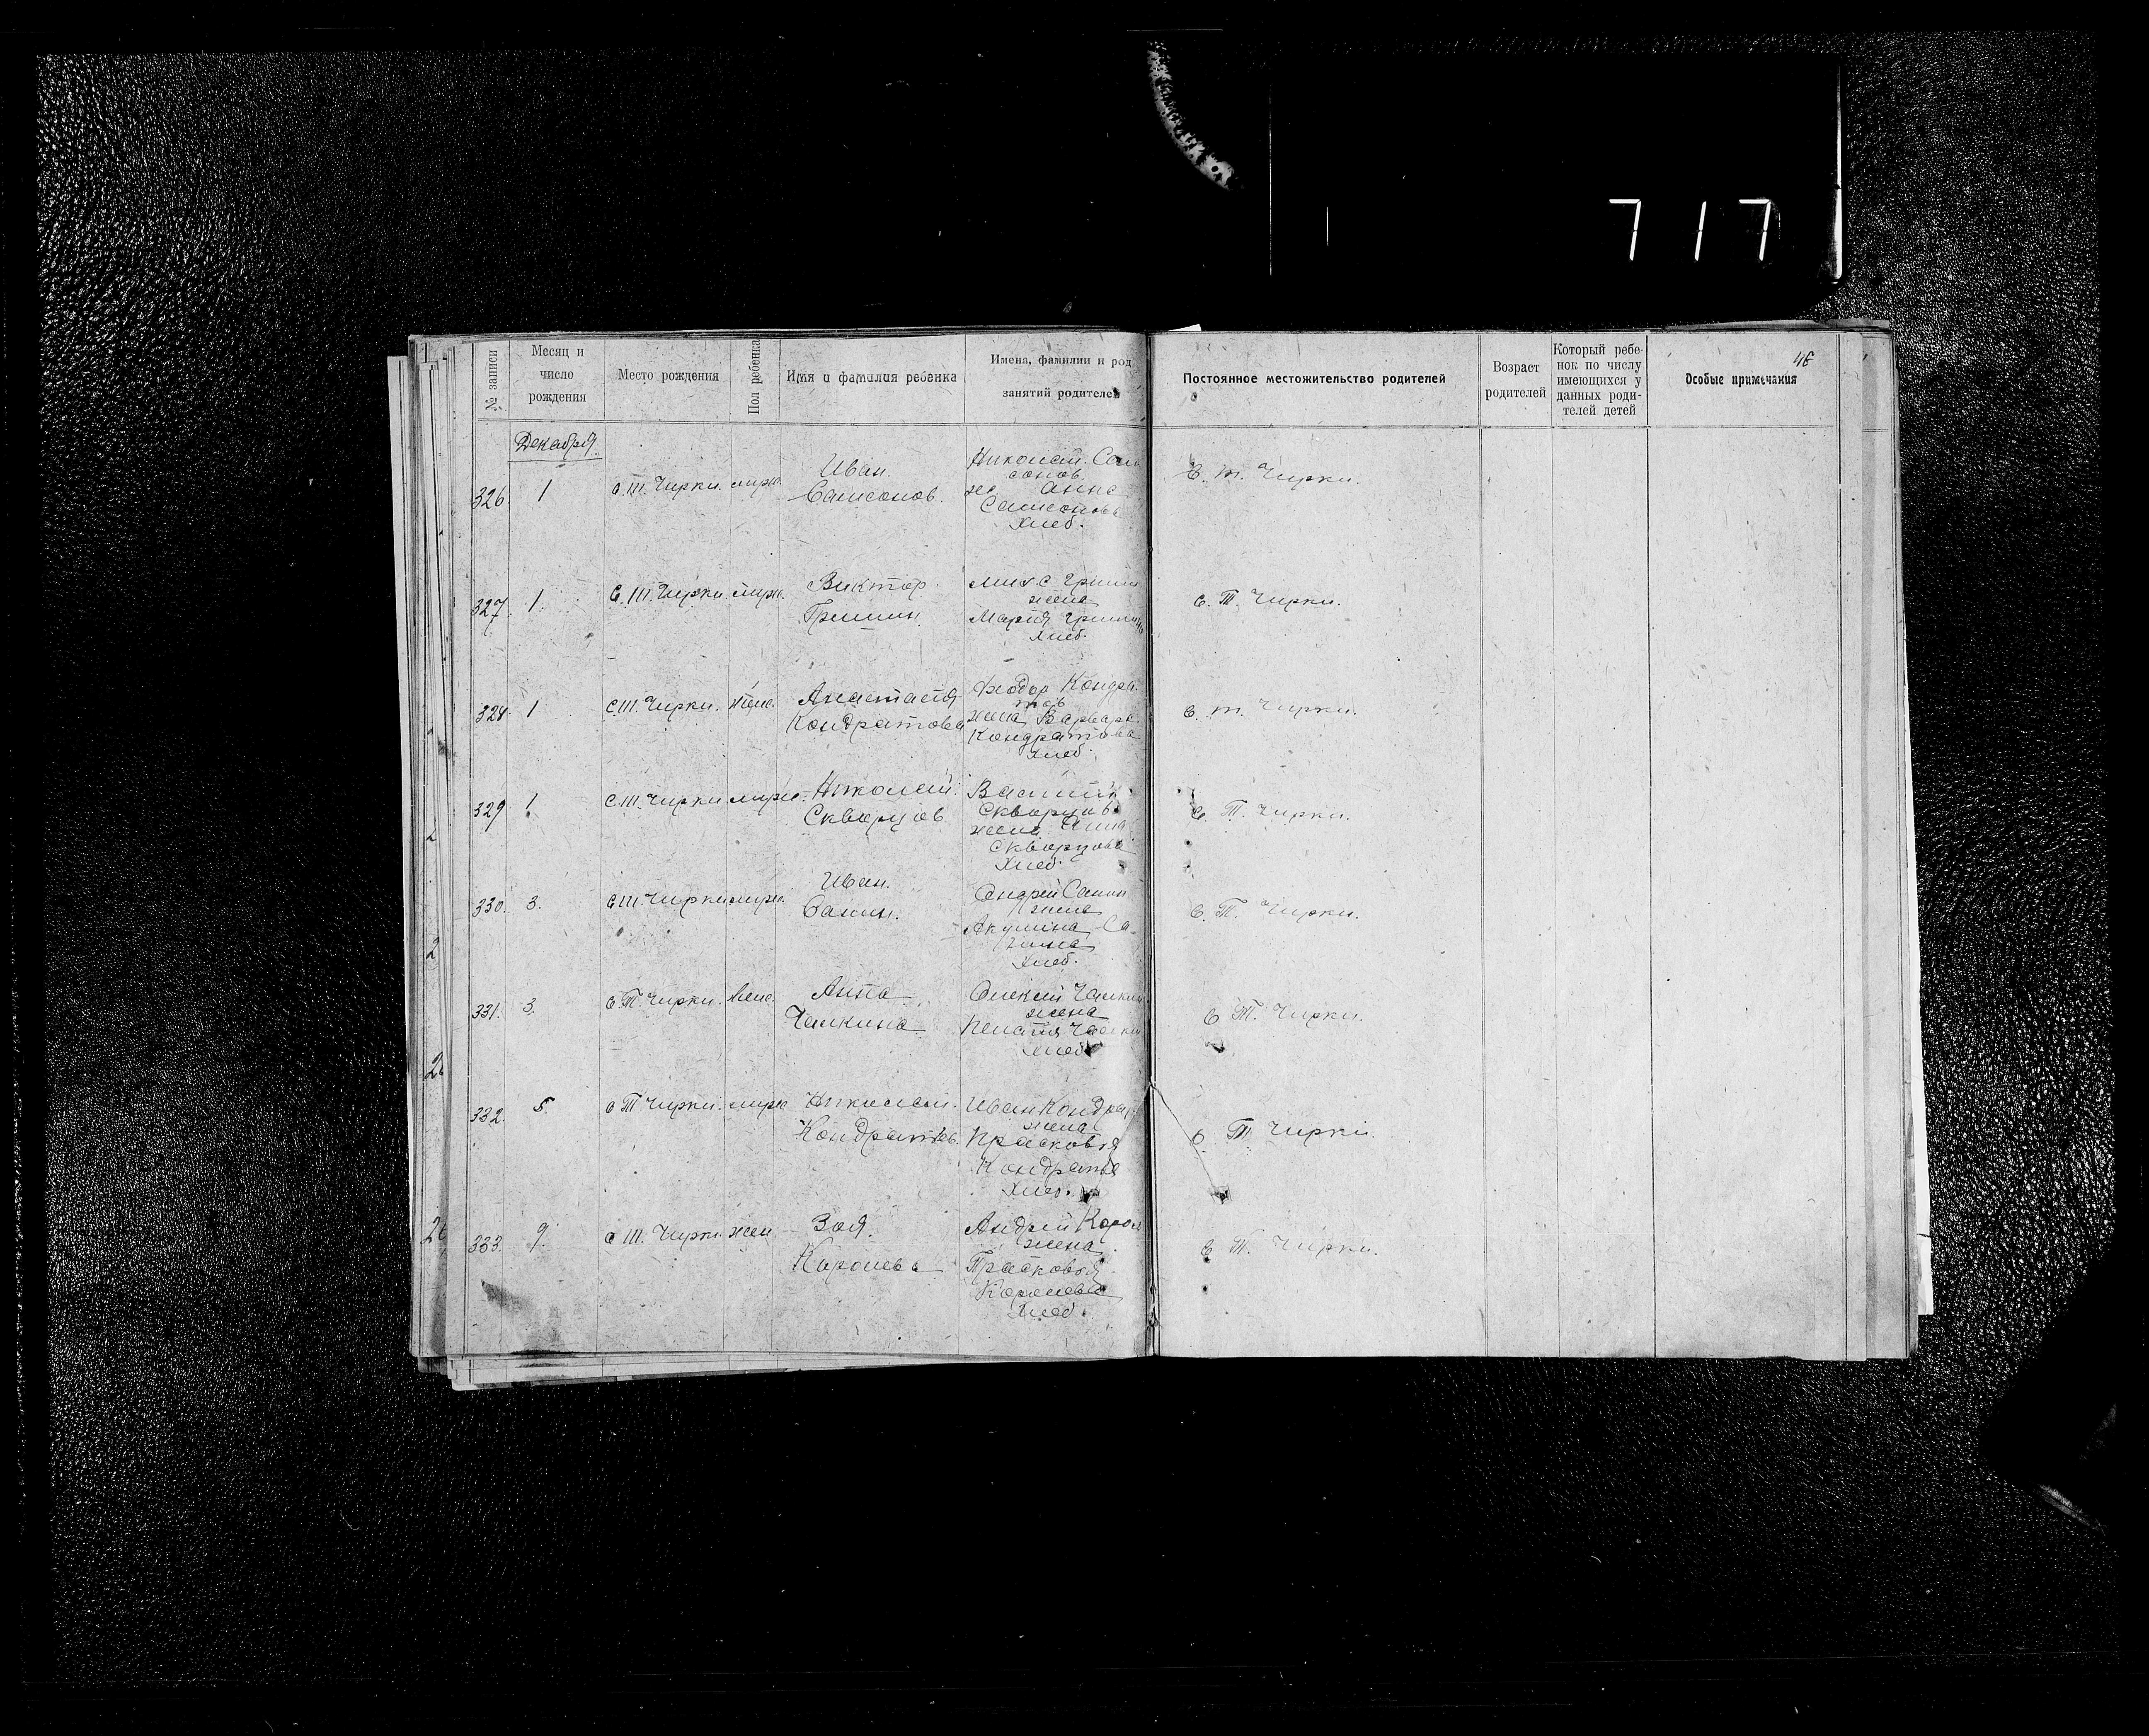 717
№ записи
Месяц и
число
рождения
Место рождения
Пол ребенка
Имя и фамилия ребенка
Имена, фамилии и род
занятий родителей
Постоянное местожительство родителей
Возраст
родителей
Который ребе-
нок по числу
имеющихся у
данных роди-
телей детей
Особые примечания
46
Декабря
326. 1 с. Т. Чирки. мужс.
Иван
Самсонов.
Николай Сам
сонов
Анна
Самсонова
хлеб.
С. Т. Чирки.
327. 1. С. Т. Чирки. мужс.
Виктор
Гришин.
Гриши
жена
Мария Гришин
хлеб.
С. Т. Чирки.
328. 1 с. Т. Чирки. жен.
Анастасия
Кондратова
Феодор Кондра
тов
жена Варвара
Кондратова
хлеб.
С. Т. Чирки.
329 1 с. Т. Чирки мужс.
Николай
Скворцов
Василий
Скворцов
жена Анна
Скворцова
хлеб.
С. Т. Чирки.
330. 3. с. Т. Чирки мужс.
Иван.
Санин.
Андрей Санин
жена
Акулина Са-
нина
хлеб.
С. Т. Чирки.
331. 3. с. Т. Чирки. жен.
Анна
Чамкина
Алексей Чамкин
жена
хлеб
С. Т. Чирки.
332. 5 с Т Чирки. мужс
Николай.
Кондратов.
Иван Кондра
жена
Прасковья
Кондратова
хлеб.
С. Т. Чирки.
333. 9. с Т. Чирки. жен
Зоя.
Королева
Андрей Корол
жена
Прасковья
Королева
хлеб.
С. Т. Чирки.